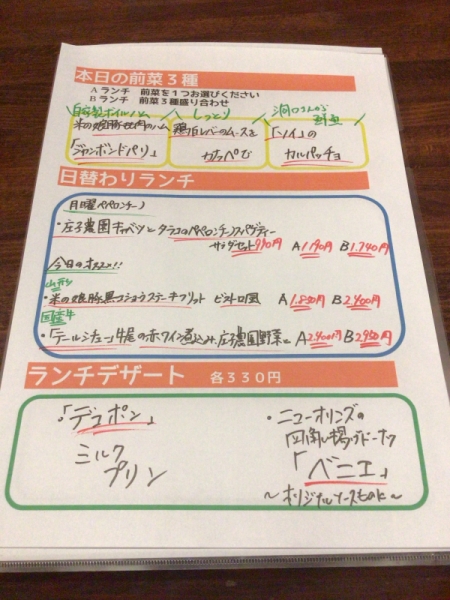 本日の前菜３種
Ａランチ 前菜を１つお選びください
Ｂランチ 前菜３種盛り合わせ
自家製ボイルハム しっとり
米の娘豚のハム 鶏白レバーのムースを 「ソイ」の
「ジャンボンドパリ」 カルパッチョ
日替わりランチ
月曜ペペロンチーノ
・庄子農園キャベツとタラコのペペロンチーノスパゲティー
サラダセット990円 A1190円 B1.740円
今日のオススメ!!
山形
・米の娘豚黒コショウステーキフリット ビストロ風 A1.850円 B2.400円
国産牛
・「テールシチュー」牛尾の赤ワイン煮込み、庄子農園野菜と A2400円 B2950円
ランチデザート 各３３０円
・「デコポン」
ミルク
プリン
・ニューオリンズの
四角い揚げドーナツ
「ベニエ」
～オリジナルソースと共に～